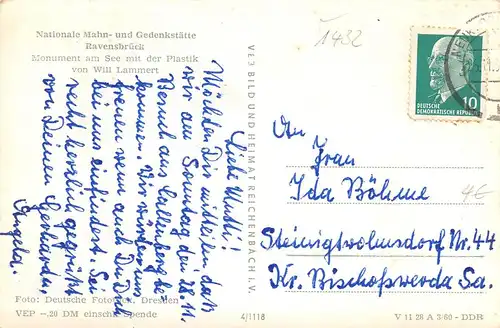 Nationale Mahn- und Gedenkstätte
Ravensbrück
Monument am See mit der Plastik
von Will Lammert
1432
DEUTSCHE
DEMOKRATISCHE REPUBLIK
10
VEB BILD UND HEIMAT REICHENBACH I. V.
Liebe Mutti!
Möchten Dir mitteilen daß
wir am Sonntag den 28.11.
Besuch aus Callenberg be-
kommen. Wir würden uns
freuen wenn auch Du Dich
bei uns einfindest. Sei
recht herzlich gegrüßt
von Deinen Gerhard u.
Angela.
An
Frau
Ida Böhme
4€
Steinigtwolmsdorf Nr. 44
Kr. Bischofswerda Sa.
Foto: Deutsche Fotothek, Dresden
VEP —,20 DM einschl. Spende
4/1118
V 11 28 A 3/60 - DDR